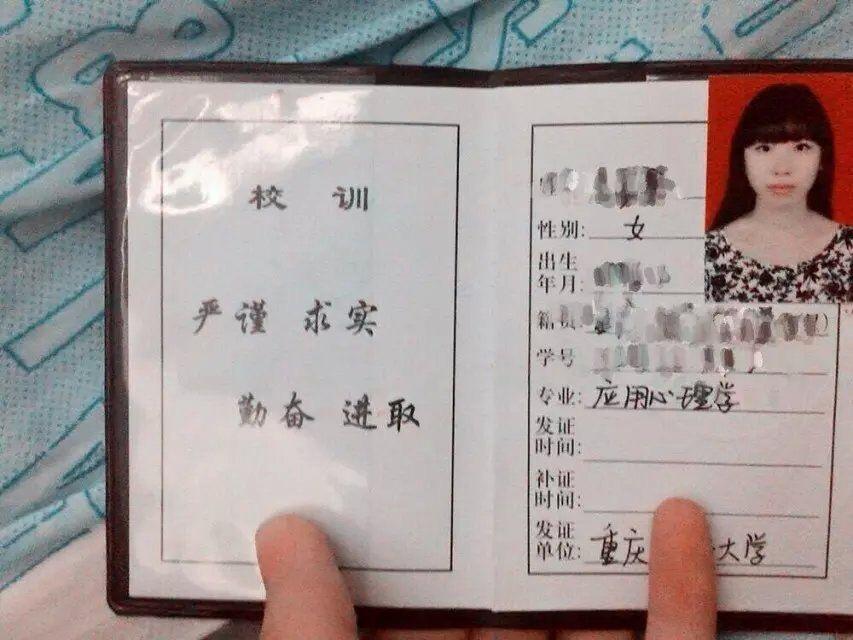 校 训
严谨 求实
勤奋 进取
性别: 女
出生
年月:
籍贯
学号
专业: 应用心理学
发证
时间:
补证
时间:
发证
单位: 重庆 大学